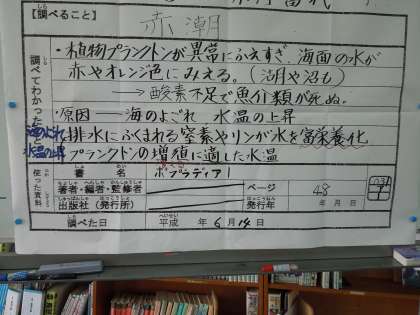 【調べること】
赤潮
調べてわかったこと
・植物プランクトンが異常にふえすぎ、海面の水が
赤やオレンジ色にみえる。(湖や沼も)
→酸素不足で魚介類が死ぬ。
・原因──海のよごれ 水温の上昇
海のよごれ
排水にふくまれる窒素やリンが水を富栄養化
水温の上昇
プランクトンの増殖に適した水温
使った資料
書名
ポプラディア1
著者・編者・監修者
ページ
48
出版社(発行所)
発行年
年 月 日
調べた日
平成 年 6月 14日